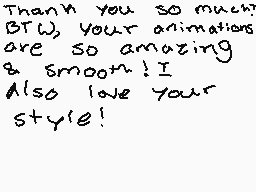 Thank you so much!
BTW, your animations
are so amazing
& smooth! I
Also love your
style!